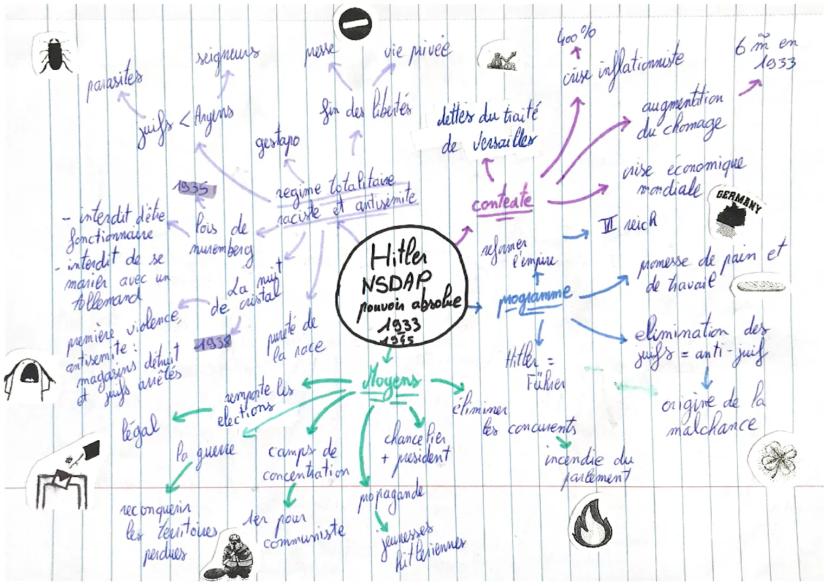 Hitler
NSDAP
pouvoir absolue
1933
1945
contexte
dettes du traité
de Versailles
crise inflationniste
400%
augmentation
du chomage
6 m̃ en
1933
crise économique
mondiale
GERMANY
programme
reformer
l'empire
VI reich
promesse de pain et
de travail
elimination des
juifs = anti-juif
origine de la
malchance
Hitler =
Führer
Moyens
éliminer
les concurents
incendie du
parlement
chancelier
+ president
propagande
jeunesses
hitlériennes
camps de
concentration
1er pour
communiste
la guerre
reconquerir
les territoires
perdues
remporte les
elections
légal
regime totalitaire
raciste et antisémite
fin des libertés
presse
vie privée
gestapo
juifs < Aryens
parasites
seigneurs
lois de
nuremberg
1935
- interdit d'être
fonctionnaire
- interdit de se
marier avec un
Allemand
La nuit
de cristal
1938
première violence
antisemite :
magasins détruit
et juifs arrêtés
pureté de
la race